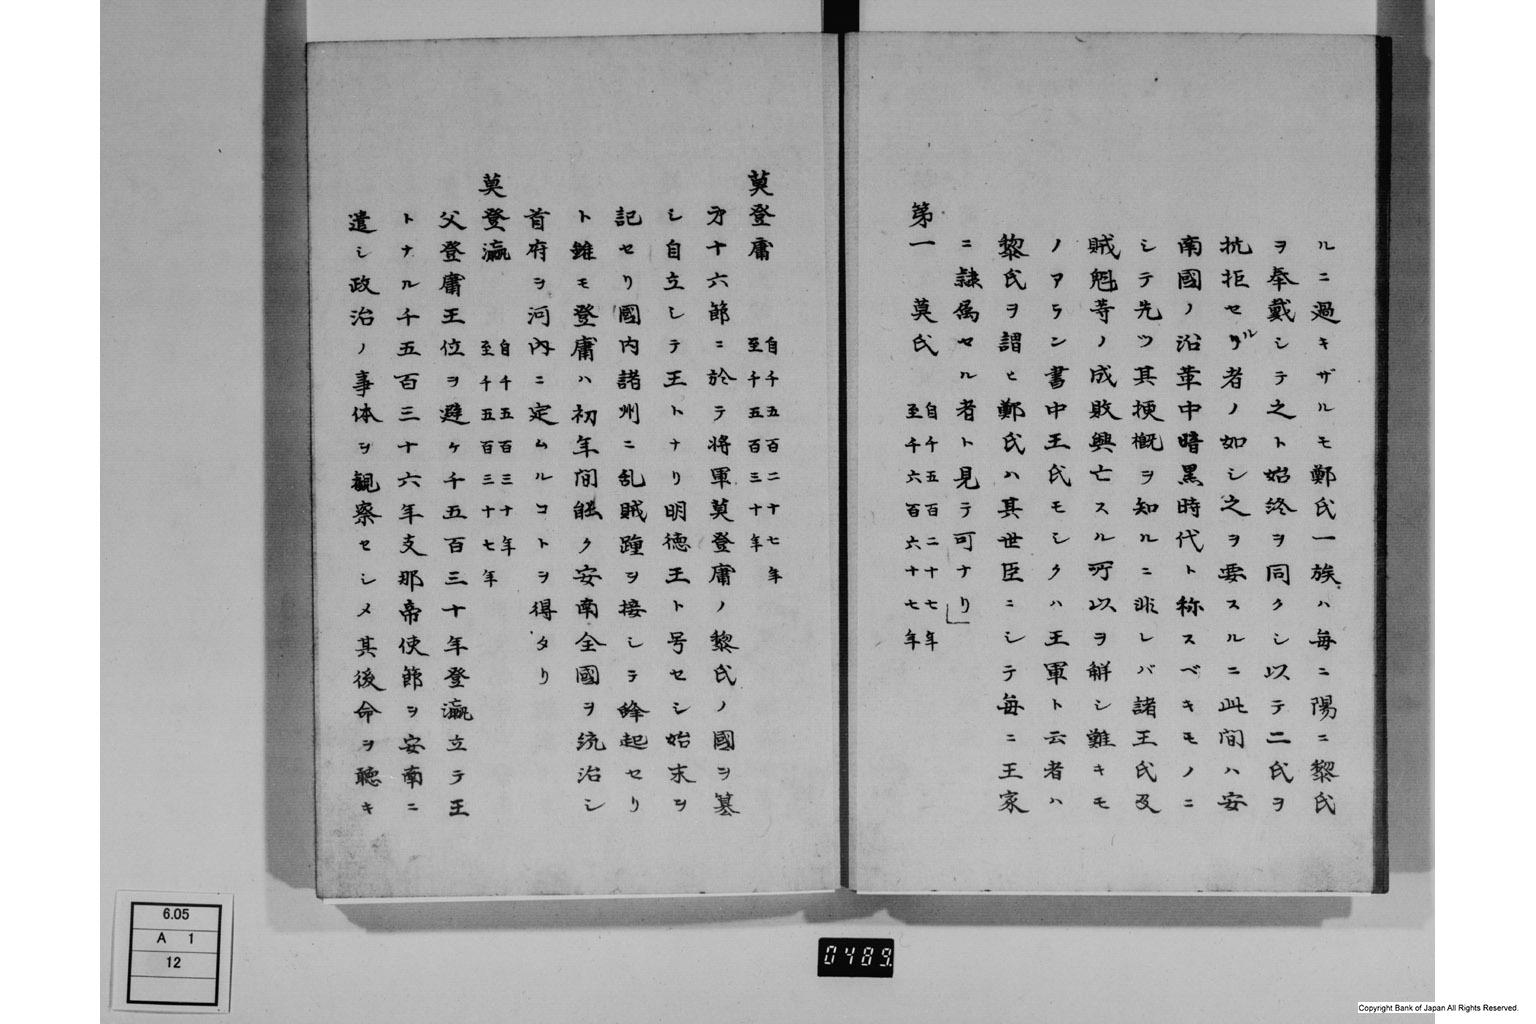 ルニ過キザルモ鄭氏一族ハ毎ニ陽ニ黎氏
ヲ奉戴シテ之ト始終ヲ同クシ以テ二氏ヲ
抗拒セル者ノ如シ之ヲ要スルニ此間ハ安
南國ノ沿革中暗黒時代ト称スベキモノニ
シテ先ツ其梗概ヲ知ルニ非レバ諸王氏及
賊魁等ノ成敗興亡スル所以ヲ觧シ難キモ
ノアラン書中王氏モシクハ王軍ト云者ハ
黎氏ヲ謂ヒ鄭氏ハ其世臣ニシテ毎ニ王家
ニ隷属セル者ト見テ可ナリ」
第一 莫氏 自千五百二十七年
至千六百六十七年
莫登庸 自千五百二十七年
至千五百三十年
第十六節ニ於テ将軍莫登庸ノ黎氏ノ國ヲ簒
シ自立シテ王トナリ明德王ト号セシ始末ヲ
記セリ國内諸州ニ乱賊踵ヲ接シテ蜂起セリ
ト雖モ登庸ハ初年間能ク安南全國ヲ統治シ
首府ヲ河内ニ定ムルコトヲ得タリ
莫登瀛 自千五百三十年
至千五百三十七年
父登庸王位ヲ避ケ千五百三十年登瀛立テ王
トナル千五百三十六年支那帝使節ヲ安南ニ
遣シ政治ノ事体ヲ觀察セシメ其後命ヲ聴キ
6.05
A 1
12
0489
Copyright Bank of Japan All Rights Reserved.